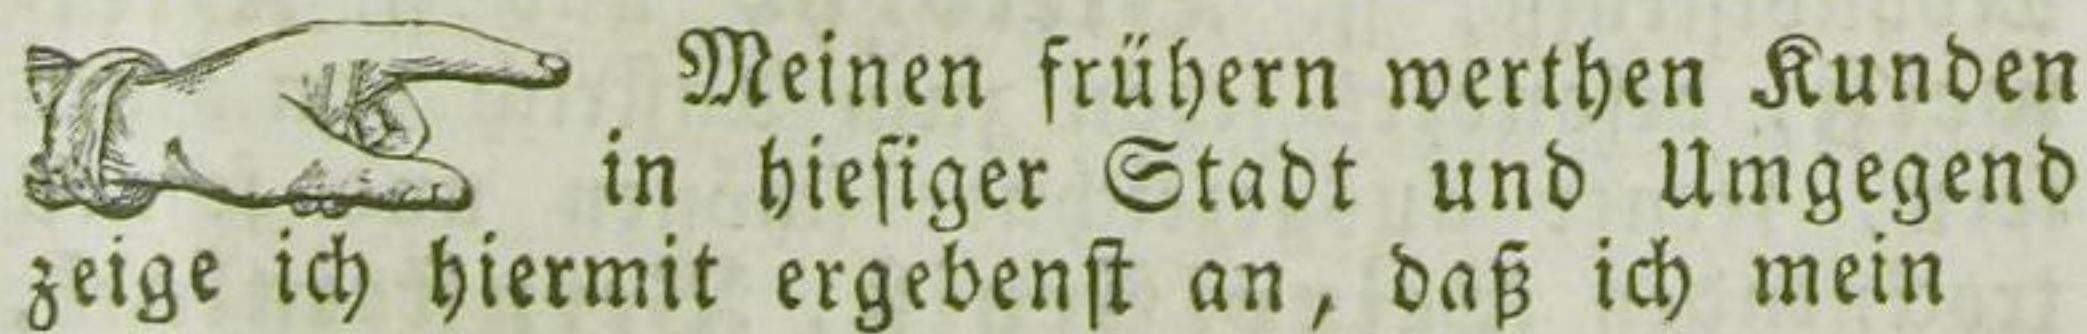 Meinen frühern werthen Kunden
in hieſiger Stadt und Umgegend
zeige ich hiermit ergebenſt an, daß ich mein